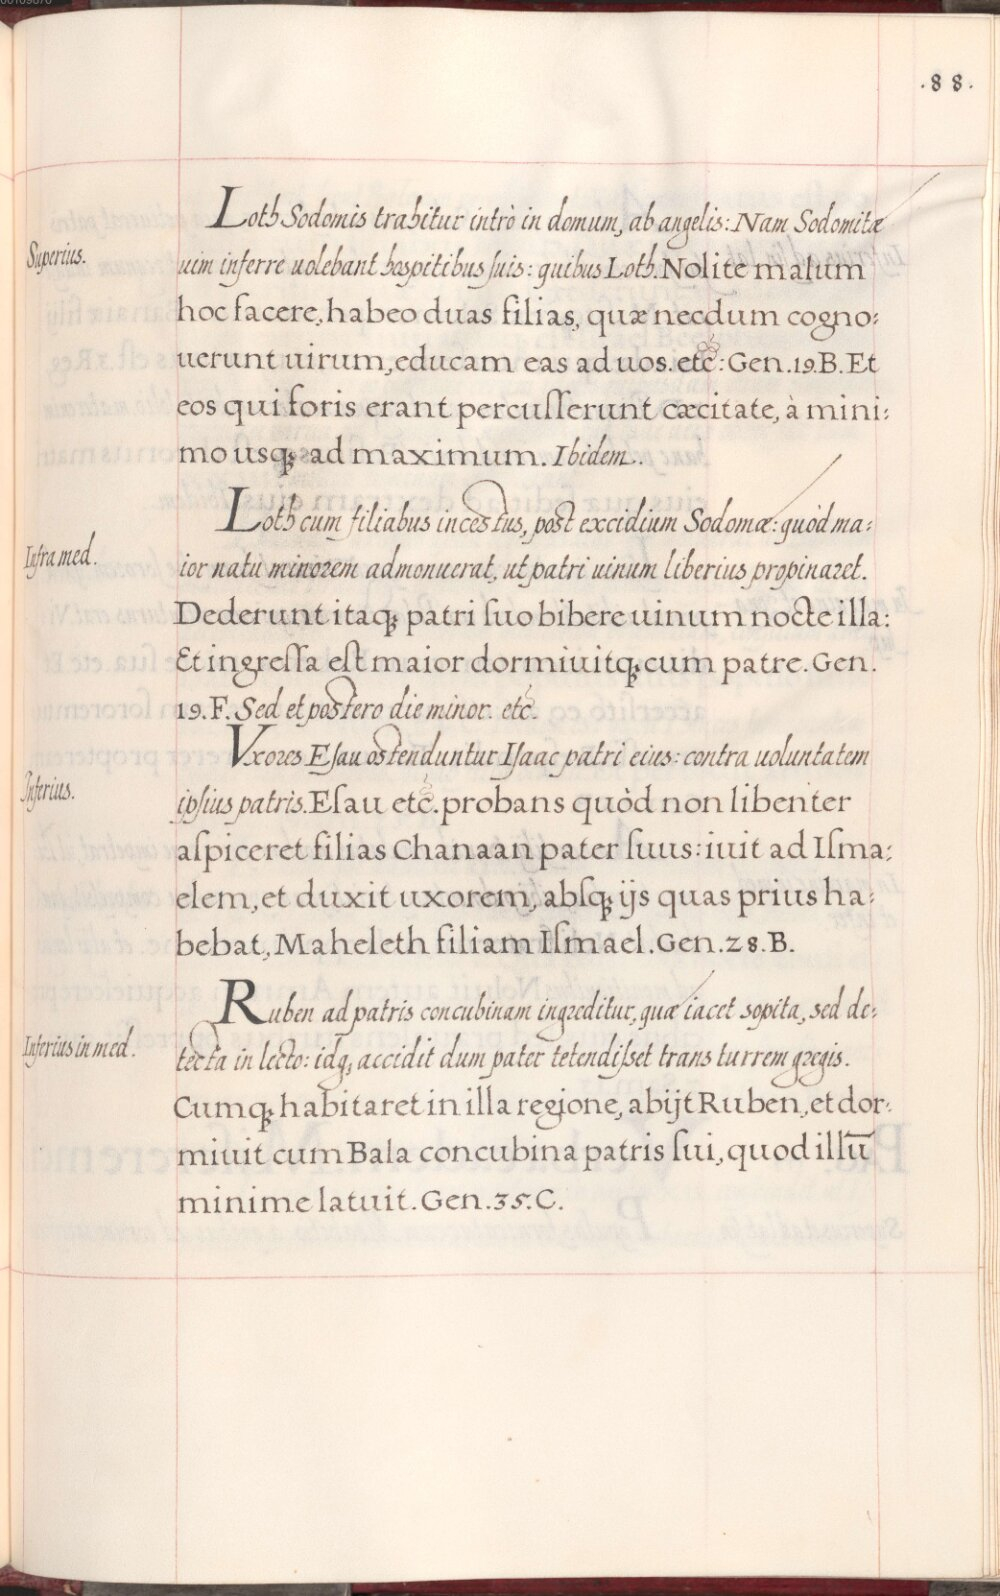 .88.
Loth Sodomis trahitur intrò in domum, ab angelis: Nam Sodomitæ
Superius.
uim inferre uolebant hospitibus suis: quibus Loth. Nolite malum
hoc facere, habeo duas filias, quæ necdum cogno:
uerunt uirum, educam eas ad uos. etc: Gen. 19. B. Et
eos qui foris erant percuſſerunt cæcitate, à mini:
mo usq; ad maximum. Ibidem.
Loth cum filiabus incestus, post excidium Sodomæ: quòd ma:
Infra med.
ior natu minorem admonuerat, ut patri uinum liberius propinaret.
Dederunt itaq; patri ſuo bibere uinum nocte illa:
Et ingreſſa eſt maior dormiuitq; cum patre. Gen.
19. F. Sed et postero die minor. etc.
Vxores Eſau ostenduntur Iſaac patri eius: contra uoluntatem
Inferius.
ipſius patris. Eſau etc. probans quòd non libenter
aſpiceret filias Chanaan pater ſuus: iuit ad Iſma:
elem, et duxit uxorem, abſq; ijs quas prius ha:
bebat, Maheleth filiam Iſmael. Gen. 28. B.
Ruben ad patris concubinam ingreditur, quæ iacet sopita, sed de:
Inferius in med.
tecta in lecto: idq; accidit dum pater tetendiſset trans turrem gregis.
Cumq; habitaret in illa regione, abijt Ruben, et dor:
miuit cum Bala concubina patris ſui, quod illū
minime latuit. Gen. 35. C.